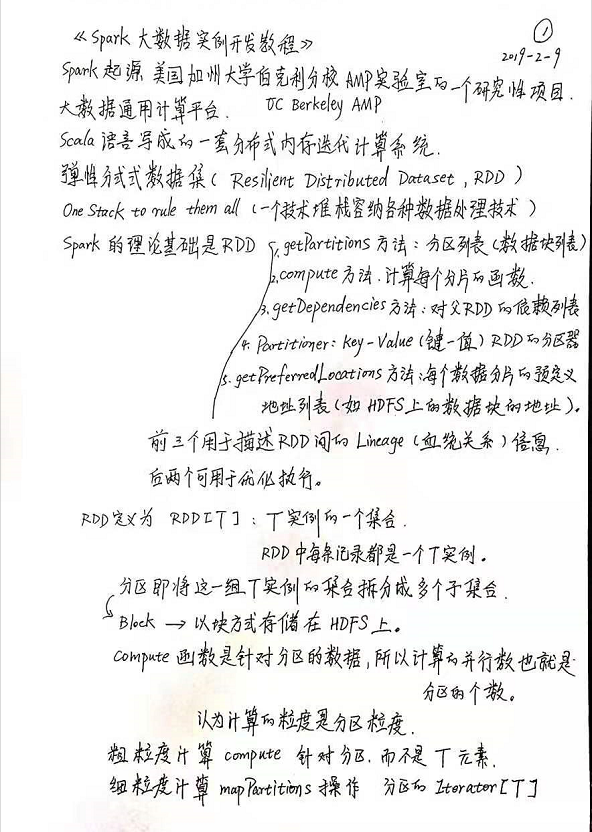 ①
2019-2-9
《Spark 大数据实例开发教程》
Spark 起源 美国加州大学伯克利分校 AMP实验室的一个研究性项目.
大数据通用计算平台. UC Berkeley AMP
Scala 语言写成的一套分布式内存迭代计算系统.
弹性分式式数据集 ( Resilient Distributed Dataset , RDD )
One Stack to rule them all (一个技术堆栈容纳各种数据处理技术)
Spark 的理论基础是RDD 1. getPartitions 方法: 分区列表 (数据块列表)
2. compute 方法. 计算每个分片的函数.
3. getDependencies 方法: 对父RDD的依赖列表
4. Partitioner: Key-Value (键一值) RDD的分区器
5. getPreferredLocations 方法: 每个数据分片的预定义
地址列表 (如 HDFS上的数据块的地址)。
前三个用于描述RDD间的 Lineage (血统关系) 信息.
后两个可用于优化执行。
RDD定义为 RDD[T] : T实例的一个集合.
RDD中每条记录都是一个T实例。
分区即将这一组T实例的集合拆分成多个子集合.
Block → 以块方式存储在 HDFS上。
Compute 函数是针对分区的数据, 所以计算的并行数也就是
分区的个数。
认为计算的粒度是分区粒度.
粗粒度计算 compute 针对分区. 而不是 T 元素.
细粒度计算 mapPartitions 操作 分区的 Iterator[T]